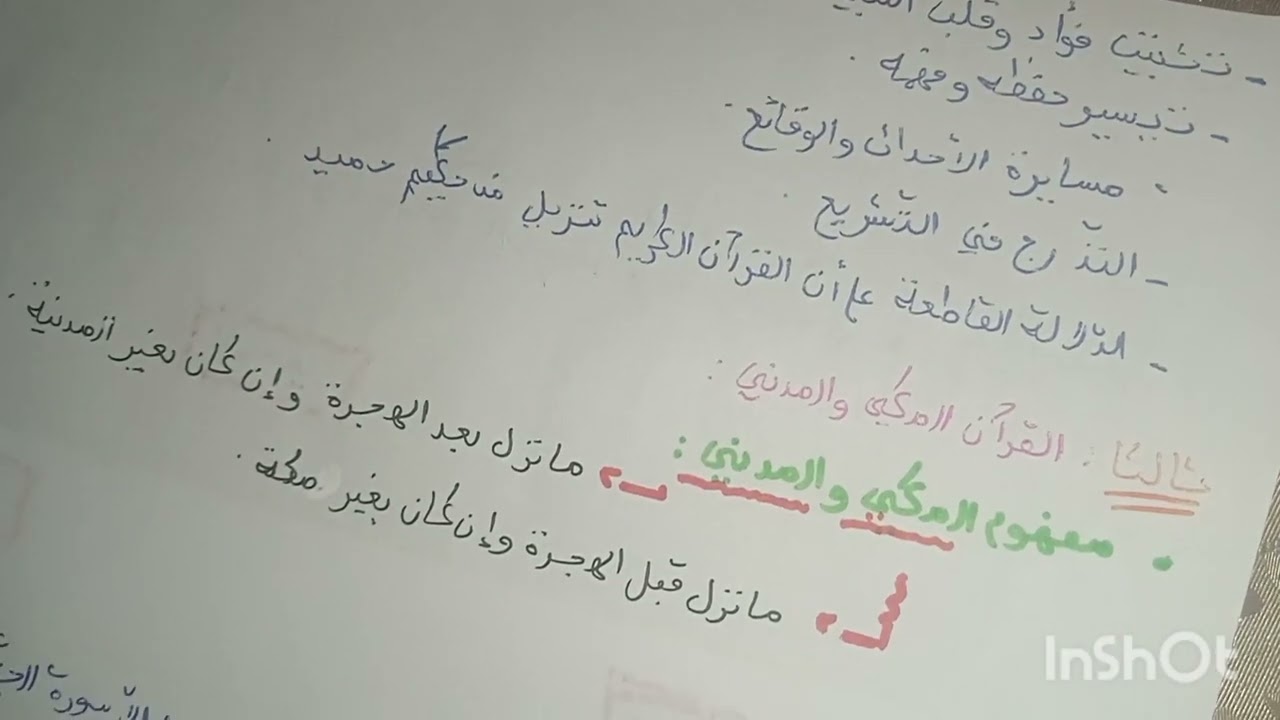 - تثبيت فؤاد وقلب
- تيسير حفظه وفهمه .
- مسايرة الأحداث والوقائع .
- التدّرج في التّشريع .
- الدّلالة القاطعة على أن القرآن الكريم تنزيل من حكيم حميد .
ثالثا : القرآن المكي والمدني :
• مفهوم المكي والمدني : ما نزل بعد الهجرة وإن كان بغير المدينة .
ما نزل قبل الهجرة وإن كان بغير مكة .
السورة
InShOt